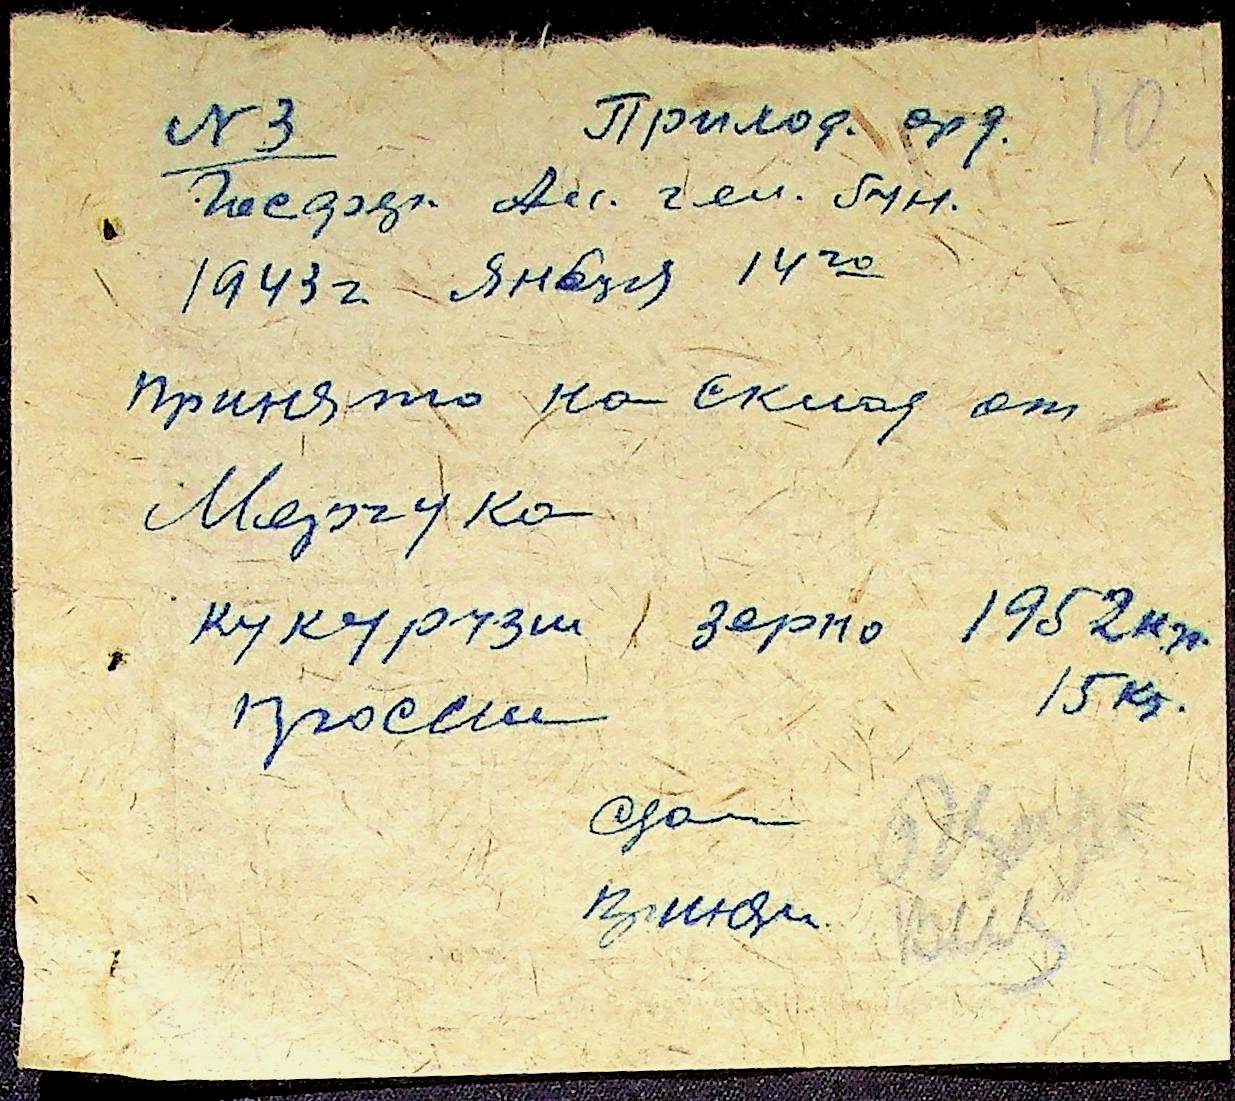 № 3 Приход. орд. 10
Ан. ген. бын.
1943 г. Января 14го
Принято на Склад от
Марчука
Кукурузы зерно 1952 кг.
Просы 15 кг.
Сдал
Принял